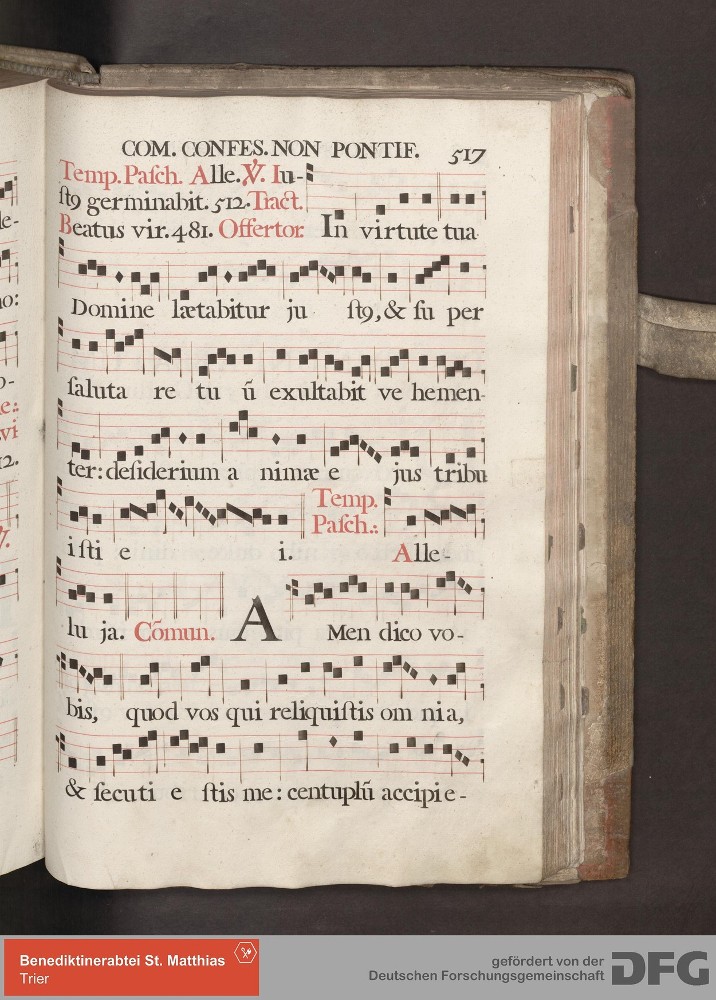 COM. CONFES. NON PONTIF. 517
Temp. Paſch. Alle. V. Iu-
ſtꝰ germinabit. 512. Tract.
Beatus vir. 481. Offertor. In virtute tua
Domine lætabitur ju ſtꝰ, & ſu per
ſaluta re tu ū exultabit ve hemen-
ter: deſiderium a nimæ e jus tribu
iſti e i. Temp. Paſch.: Alle-
lu ja. Cōmun. A Men dico vo-
bis, quod vos qui reliquiſtis om nia,
& ſecuti e ſtis me: centuplū accipi e-
Benediktinerabtei St. Matthias
Trier
gefördert von der
Deutschen Forschungsgemeinschaft DFG